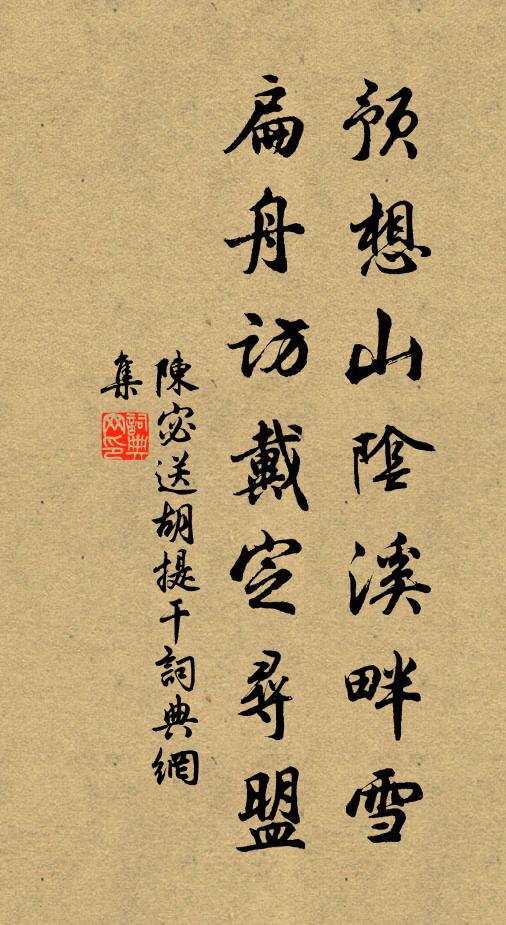 預想山陰溪畔雪
扁舟訪戴定尋盟
陳宓送胡提干詞典網
集
詞典
网印